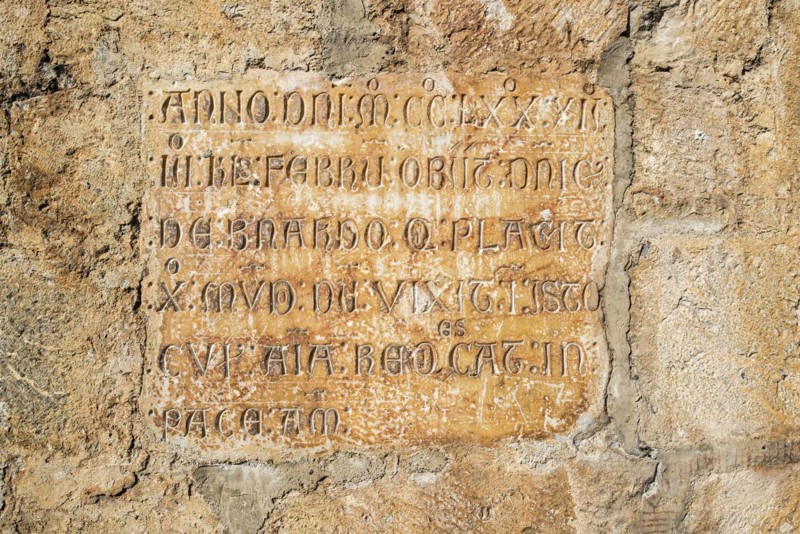 : ANNO : DNI : M : CC : LXX : XII
: III : KL : FEBRU : OBIIT : DNIC
: DE : BNARDO : Q : PLACIT
: X : MVD : DE : VIXIT : I : ISTO
CVI : AIA : REQ : ES CAT : IN :
PACE : AM :